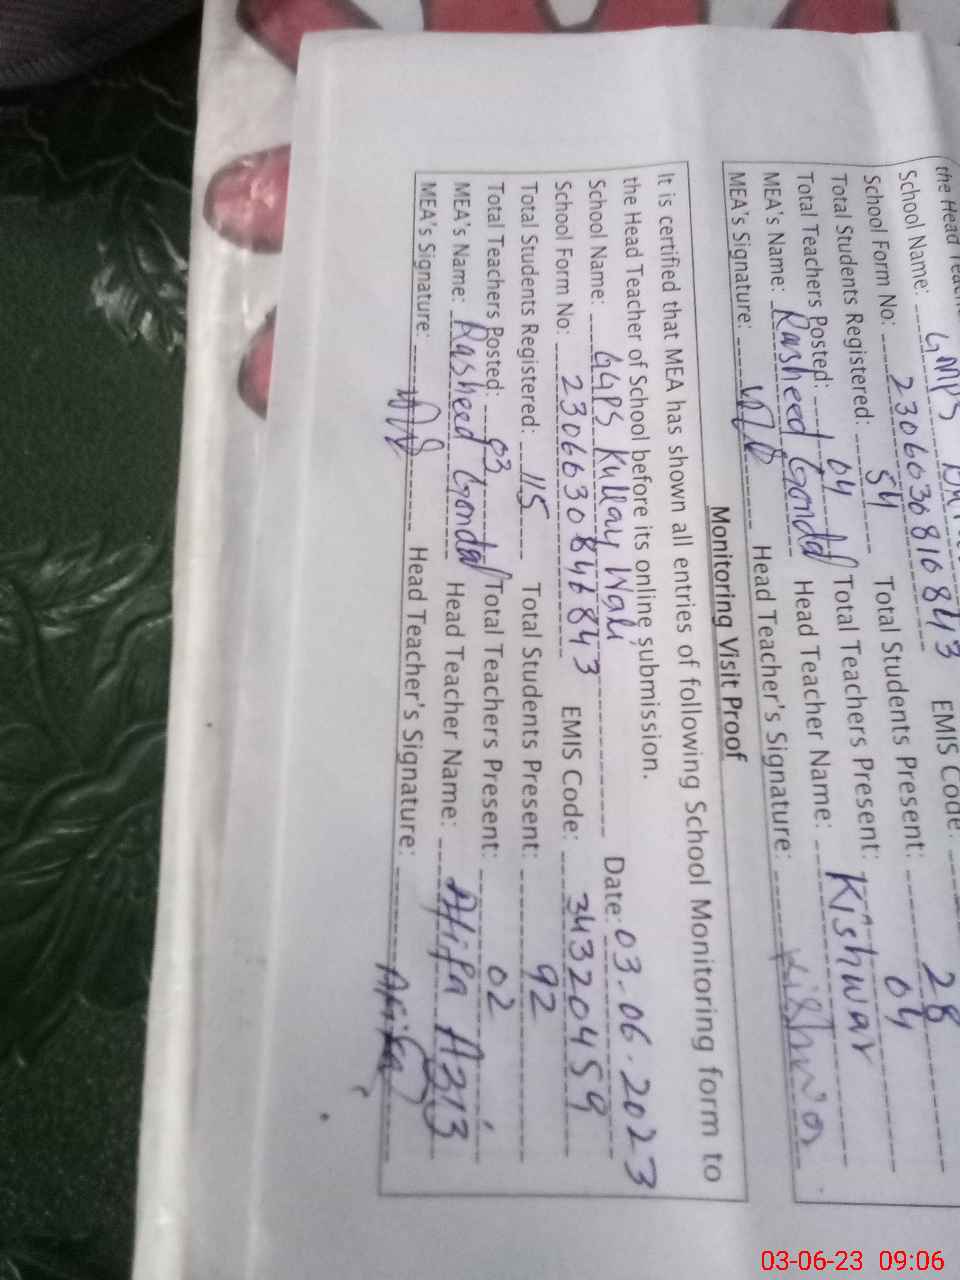 the Head
School Name: GMPS
School Form No: 2306030816843 EMIS Code:
Total Students Registered: 54 Total Students Present: 28
Total Teachers Posted: 04 Total Teachers Present: 04
MEA's Name: Rasheed Gondal Head Teacher Name: Kishwar
MEA's Signature: Head Teacher's Signature: Kishwar
Monitoring Visit Proof
It is certified that MEA has shown all entries of following School Monitoring form to
the Head Teacher of School before its online submission.
School Name: GGPS Kullay Wali Date: 03.06.2023
School Form No: 2306630846843 EMIS Code: 34320459
Total Students Registered: 115 Total Students Present: 92
Total Teachers Posted: 03 Total Teachers Present: 02
MEA's Name: Rasheed Gondal Head Teacher Name: Afifa Aziz
MEA's Signature: Head Teacher's Signature: Afifa
03-06-23 09:06